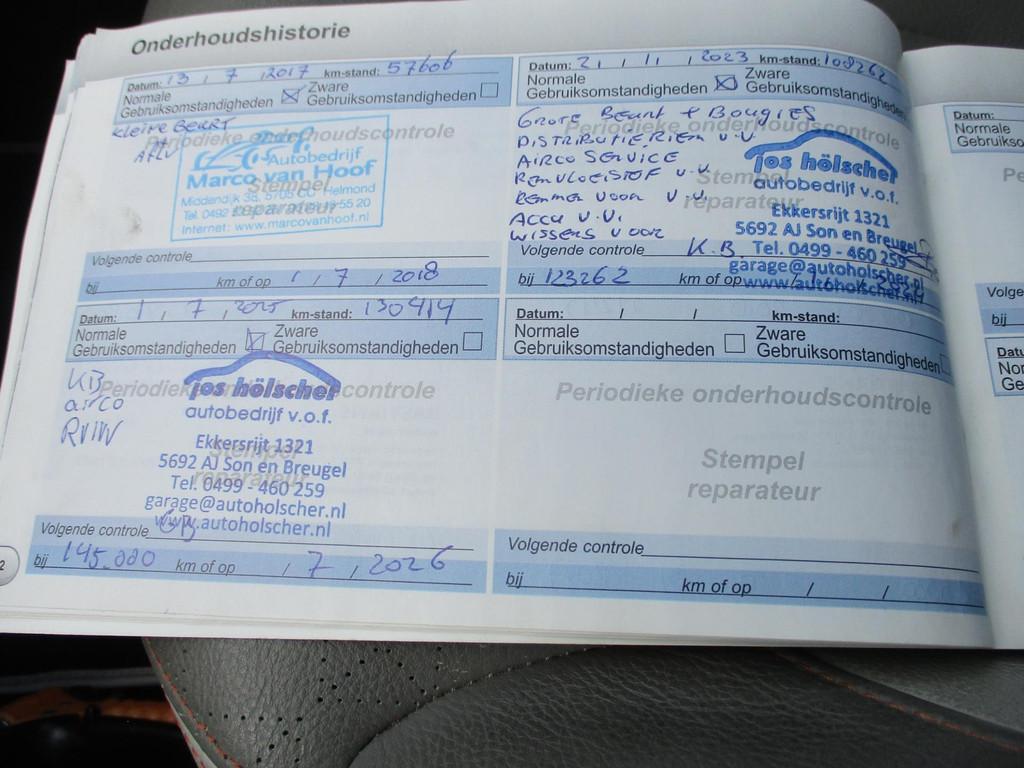 Onderhoudshistorie
Datum: 13 / 7 / 2017 km-stand: 57606
Normale Gebruiksomstandigheden
Zware Gebruiksomstandigheden
Kleine BEURT
Periodieke onderhoudscontrole
Autobedrijf
Marco van Hoof
Stempel
Helmond
reparateur
Internet: www.marcovanhoof.nl
Volgende controle
bij km of op 1 / 7 / 2018
Datum: 21 / 11 / 2023 km-stand: 108262
Normale Gebruiksomstandigheden
Zware Gebruiksomstandigheden
GROTE BEURT + BOUGIES
Periodieke onderhoudscontrole
DISTRIBUTIERIEM V.V.
AIRCO SERVICE
REMVLOEISTOF V.V.
REMMEN VOOR V.V.
ACCU V.V.
WISSERS VOOR
Stempel
reparateur
jos hölscher
autobedrijf v.o.f.
Ekkersrijt 1321
5692 AJ Son en Breugel
Tel. 0499 - 460 259
garage@autoholscher.nl
www.autoholscher.nl
Volgende controle K.B.
bij 123262 km of op
Datum: 1 / 7 / 2025 km-stand: 130414
Normale Gebruiksomstandigheden
Zware Gebruiksomstandigheden
KB
airco
Periodieke onderhoudscontrole
jos hölscher
autobedrijf v.o.f.
Ekkersrijt 1321
Stempel
5692 AJ Son en Breugel
reparateur
Tel. 0499 - 460 259
garage@autoholscher.nl
www.autoholscher.nl
Volgende controle GB
bij 145.000 km of op / 7 / 2026
Datum: / / km-stand:
Normale Gebruiksomstandigheden
Zware Gebruiksomstandigheden
Periodieke onderhoudscontrole
Stempel
reparateur
Volgende controle
bij km of op / /
2
Datum:
Normale
Gebruikso
Volge
bij
Datu
Nor
Ge